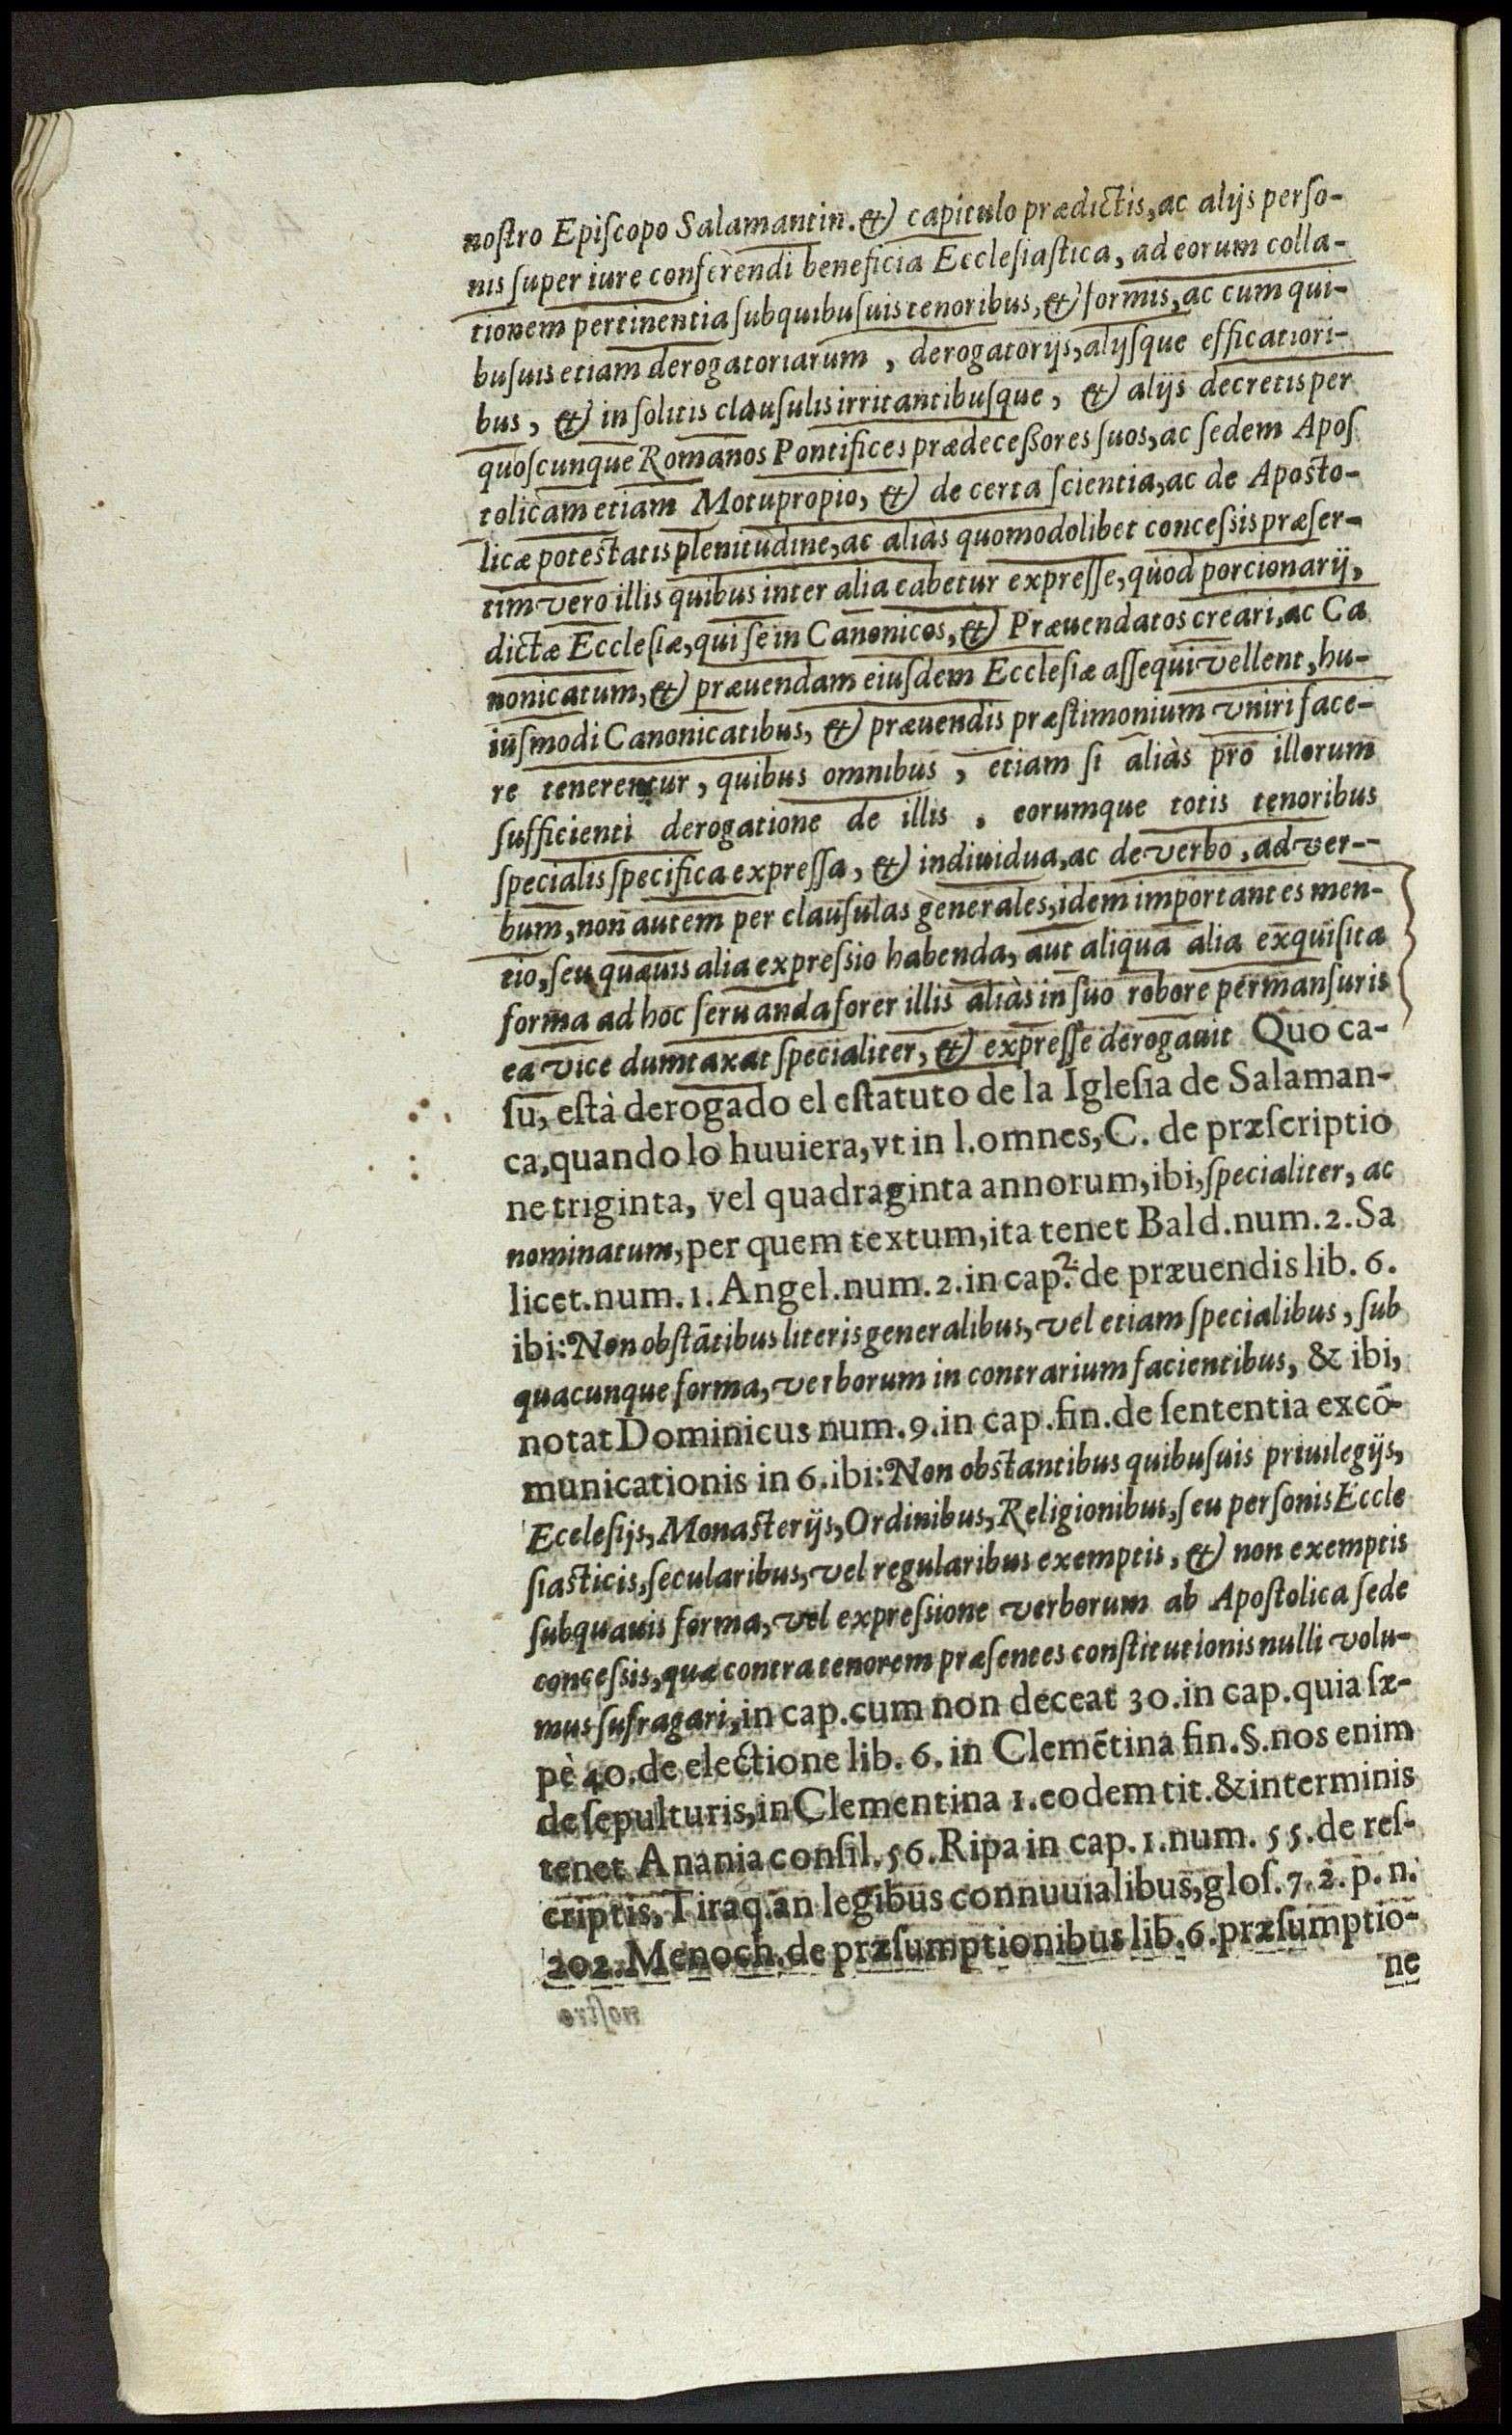 noſtro Epiſcopo Salamantin. & capitulo prædictis, ac alijs perſo-
nis ſuper iure conferendi beneficia Eccleſiaſtica, ad eorum colla-
tionem pertinentia ſub quibuſuis tenoribus, & formis, ac cum qui-
buſuis etiam derogatoriarum, derogatorijs, alijſque efficatiori-
bus, & inſolitis clauſulis irritantibuſque, & alijs decretis per
quoſcunque Romanos Pontifices prædeceßores ſuos, ac ſedem Apoſ
tolicam etiam Motupropio, & de certa ſcientia, ac de Apoſto-
licæ poteſtatis plenitudine, ac aliàs quomodolibet conceſsis præſer-
tim vero illis quibus inter alia cabetur expreſſe, quòd porcionarij,
dictæ Eccleſiæ, qui ſe in Canonicos, & Præuendatos creari, ac Ca
nonicatum, & præuendam eiuſdem Eccleſiæ aſſequi vellent, hu-
iuſmodi Canonicatibus, & præuendis præſtimonium vniri face-
re tenerentur, quibus omnibus, etiam ſi aliàs pro illorum
ſufficienti derogatione de illis, eorumque totis tenoribus
ſpecialis ſpecifica expreſſa, & indiuidua, ac de verbo, ad ver--
bum, non autem per clauſulas generales, idem importantes men-
tio, ſeu quæuis alia expreſsio habenda, aut aliqua alia exquiſita
forma ad hoc ſeruanda forer illis aliàs in ſuo robore permanſuris
ea vice dumtaxat ſpecialiter, & expreſſe derogauit Quo ca-
ſu, eſtà derogado el eſtatuto de la Igleſia de Salaman-
ca, quando lo huuiera, vt in l. omnes, C. de præſcriptio
ne triginta, vel quadraginta annorum, ibi, ſpecialiter, ac
nominatum, per quem textum, ita tenet Bald. num. 2. Sa
licet. num. 1. Angel. num. 2. in cap. 2. de præuendis lib. 6.
ibi: Non obſtātibus literis generalibus, vel etiam ſpecialibus, ſub
quacunque forma, verborum in contrarium facientibus, & ibi,
notat Dominicus num. 9. in cap. fin. de ſententia excō-
municationis in 6. ibi: Non obſtantibus quibuſuis priuilegijs,
Eceleſijs, Monaſterijs, Ordinibus, Religionibus, ſeu perſonis Eccle
ſiaſticis, ſecularibus, vel regularibus exemptis, & non exemptis
ſub quauis forma, vel expreſsione verborum ab Apoſtolica ſede
conceſsis, quæ contra tenorem præſentes conſtitutionis nulli volu-
mus ſufragari, in cap. cum non deceat 30. in cap. quia ſæ-
pè 40. de electione lib. 6. in Clemētina fin. §. nos enim
de ſepulturis, in Clementina 1. eodem tit. & in terminis
tenet Anania conſil. 56. Ripa in cap. 1. num. 55. de reſ-
criptis, Tiraq. an legibus connuuialibus, gloſ. 7. 2. p. n.
202. Menoch. de præſumptionibus lib. 6. præſumptio-
ne